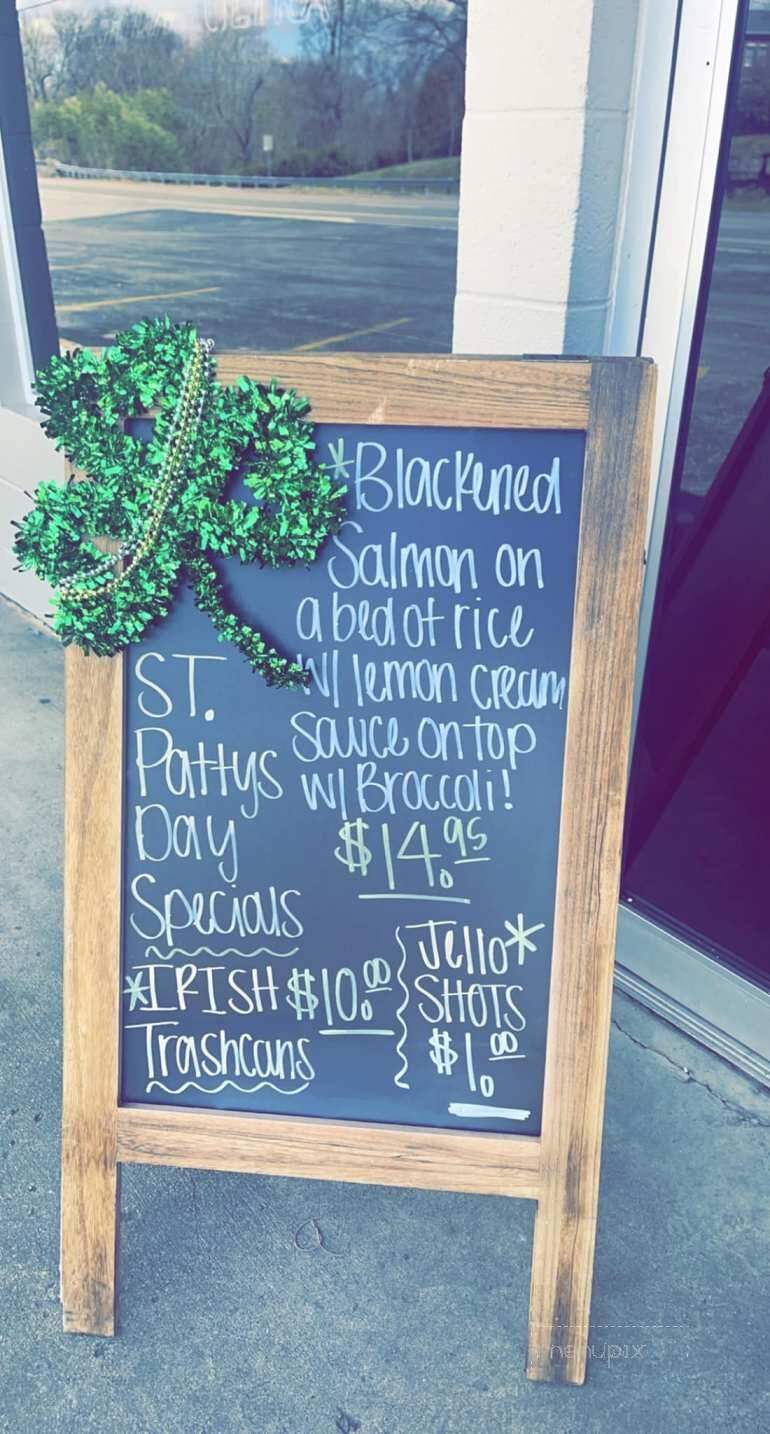 *Blackened
Salmon on
a bed of rice
w/ lemon cream
sauce on top
w/ Broccoli!
$14.95
ST.
Pattys
Day
Specials
*IRISH $10.00
Trashcans
Jello*
SHOTS
$1.00
menupix